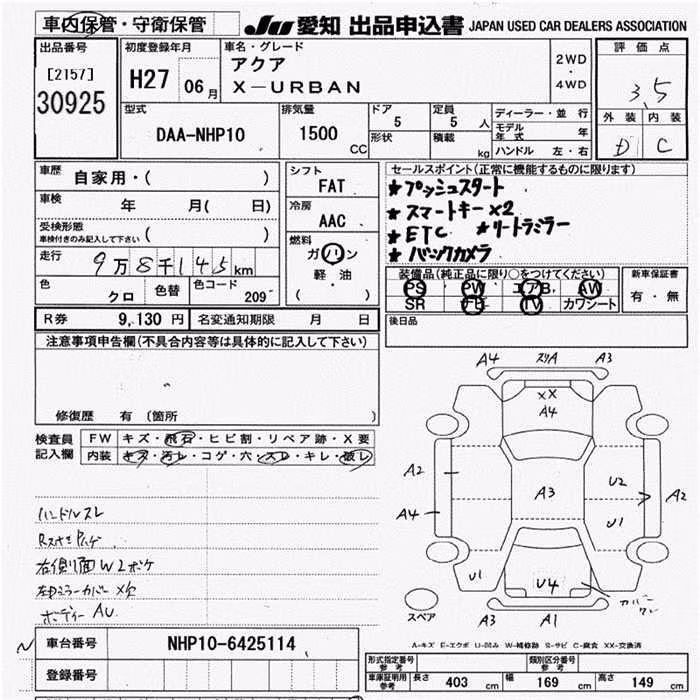 車内保管・守衛保管
JU 愛知 出品申込書 JAPAN USED CAR DEALERS ASSOCIATION
出品番号
[2157]
30925
初度登録年月
H27 06月
車名・グレード
アクア
X-URBAN
2WD
・
4WD
評価点
3.5
外装 内装
D C
型式
DAA-NHP10
排気量
1500 CC
ドア 5
形状
定員 5 人
積載 kg
ディーラー・並行
モデル年式 年
ハンドル 左・右
車歴
自家用・( )
車検 年 月( 日)
受検形態
車検付きのみ記入して下さい ( )
走行 9万8千145km
色 クロ 色替 色コード 209
シフト
FAT
冷房
AAC
燃料
ガソリン
軽・油
( )
セールスポイント(正常に機能するものに限ります)
★プッシュスタート
★スマートキー×2
★ETC ★リートラミラー
★バックカメラ
装備品(純正品に限り○をつけてください)
PS PW エアB AW
SR ナビ TV カワシート
新車保証書
有・無
後日品
R券 9,130円 名変通知期限 月 日
注意事項申告欄(不具合内容等は具体的に記入して下さい)
修復歴 有 (箇所 )
検査員記入欄
FW キズ・飛石・ヒビ割・リペア跡・X要
内装 キズ・汚レ・コゲ・穴・スレ・キレ・破レ
ハンドルスレ
右側面W2ボケ
左ドアミラーカバー×欠
ボディーAU
A4 スリA A3
XX
A4
A2
A4
A3
U2
U1
A2
U1
U4
A3 A1
スペア
A-キズ E-エクボ U-凹み W-補修跡 S-サビ C-腐食 XX-交換済
車台番号 NHP10-6425114
登録番号
形式指定番号 参考
類別区分番号 参考
車庫証明用参考 長さ 403 cm 幅 169 cm 高さ 149 cm